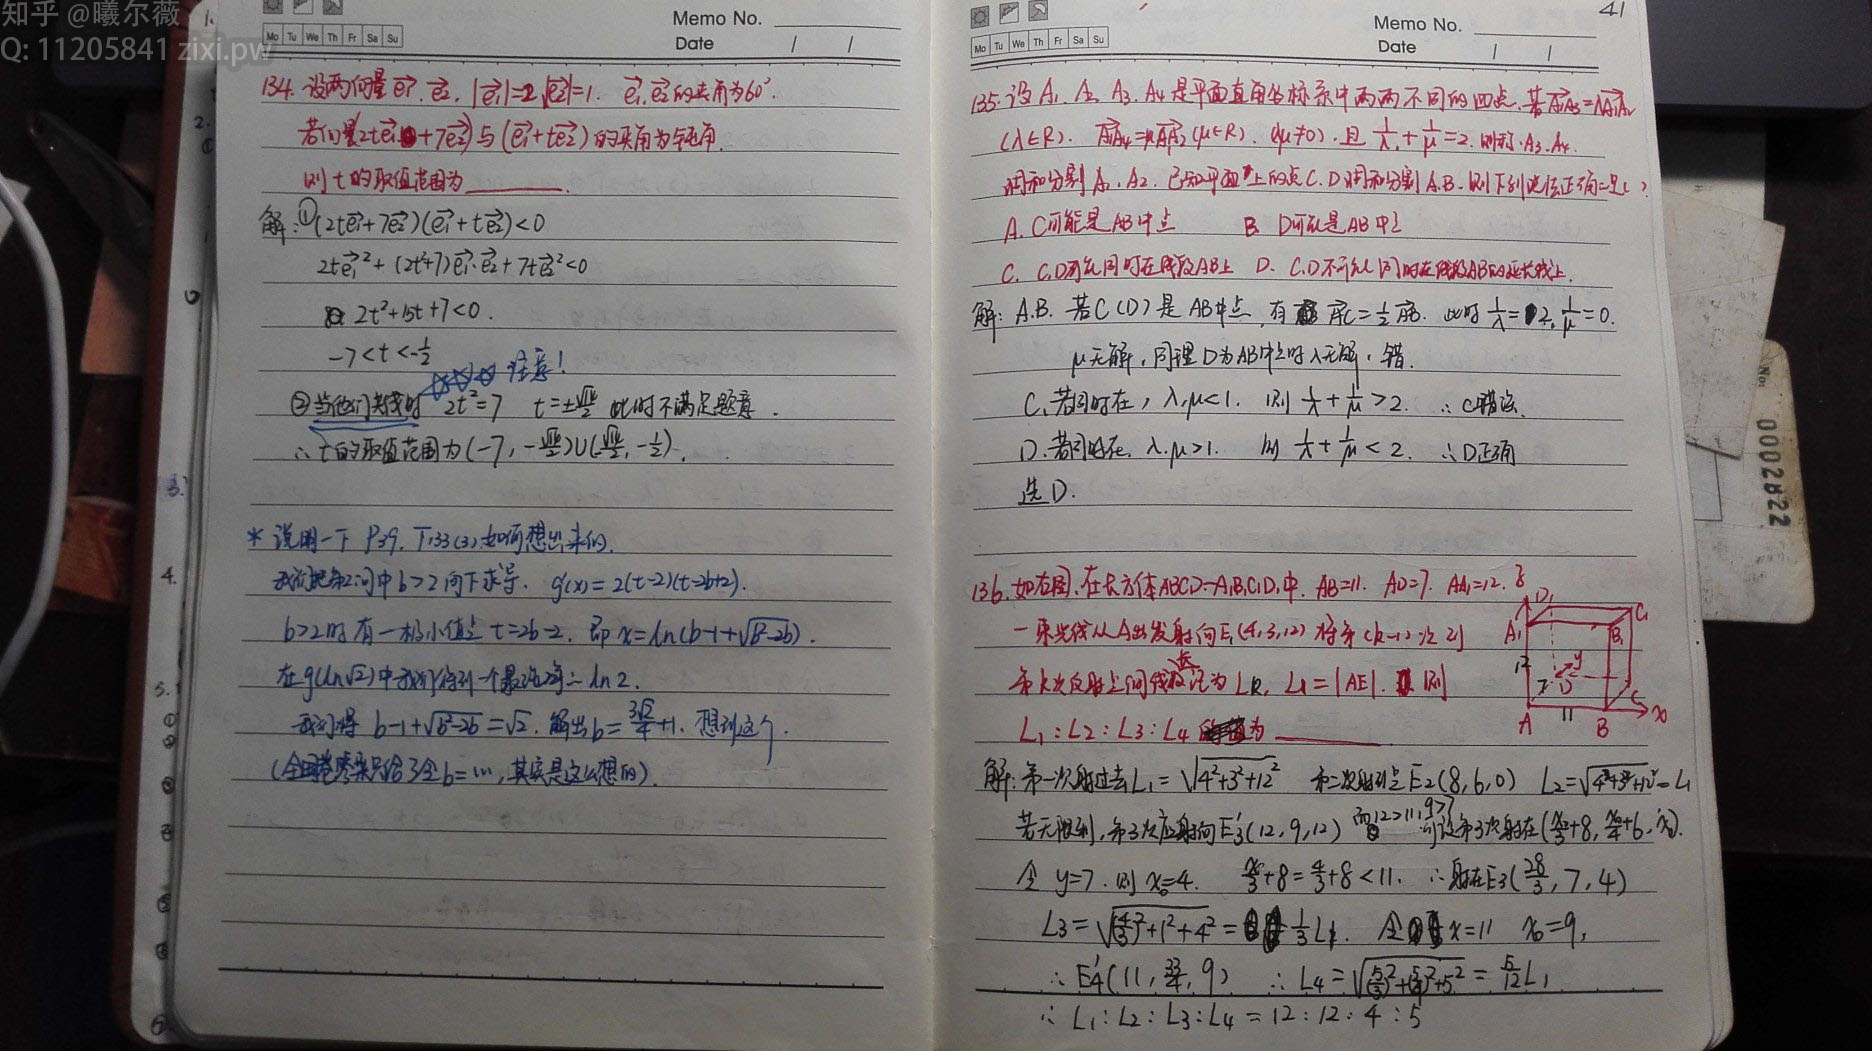 知乎 @曦尔薇
Q: 11205841 zixi.pw
Memo No.
Mo Tu We Th Fr Sa Su
Date / /
134. 设两向量e₁、e₂, |e₁|=2, |e₂|=1. e₁、e₂的夹角为60°.
若向量(2te₁+7e₂)与(e₁+te₂)的夹角为钝角.
则t的取值范围为______.
解:①(2te₁+7e₂)(e₁+te₂)<0
2te₁²+(2t²+7)e₁·e₂+7te₂²<0
2t²+15t+7<0.
-7<t<-1/2
注意!
②当他们共线时 2t²=7 t=±√14/2 此时不满足题意.
∴t的取值范围为(-7, -√14/2)∪(-√14/2, -1/2).
* 说明一下 P39. T133(3)如何想出来的.
我们把第2问中b>2向下求导. g'(x)=2(t-2)(t-2b+2).
b>2时有一极小值点 t=2b-2. 即 x=ln(b-1+√b²-2b).
在g(ln√2)中我们得到一个最 ln2.
我们得 b-1+√b²-2b=√2. 解出b=3√2/4+1. 想到这个.
(全国卷答案只给了令b=…, 其实是这么想的).
Memo No.
41
Mo Tu We Th Fr Sa Su
Date / /
135. 设A₁、A₂、A₃、A₄是平面直角坐标系中两两不同的四点, 若A₁A₃=λA₁A₂
(λ∈R). A₁A₄=μA₁A₂(μ∈R). (μ≠0). 且 1/λ+1/μ=2. 则称A₃、A₄
调和分割A₁、A₂. 已知平面上的点C、D调和分割A、B. 则下列说法正确的是( )
A. C可能是AB中点 B. D可能是AB中点
C. C、D可能同时在线段AB上 D. C、D不可能同时在线段AB的延长线上.
解: A.B. 若C(D)是AB中点, 有AC=1/2AB. 此时1/λ=2, 1/μ=0.
μ无解, 同理D为AB中点时λ无解, 错.
C、若同时在, λ、μ<1. 则1/λ+1/μ>2. ∴C错误.
D. 若同时在. λ、μ>1. 则 1/λ+1/μ<2. ∴D正确
选D.
136. 如右图, 在长方体ABCD-A₁B₁C₁D₁中, AB=11. AD=7. AA₁=12.
一束光线从A出发射向E₁(4,3,12) 将第(k-1)次到
第k次反射点间线段记为Lk, L₁=|AE₁|. 则
L₁:L₂:L₃:L₄ 为______.
z D₁ C₁ A₁ B₁ 12 y 7 D C A 11 B x
解: 第一次射过去L₁=√4²+3²+12² 第二次射到点E₂(8,6,0) L₂=√4²+3²+12²=L₁
若无限制, 第3次应射向E₃'(12,9,12) 而12>11, 9>7 可设第3次射在(x₀/3+8, x₀/4+6, x₀).
令y=7. 则x₀=4. x₀/3+8=4/3+8<11. ∴射在E₃(28/3, 7, 4)
L₃=√(4/3)²+1²+4²=1/3L₁. 令x=11 x₀=9,
∴E₄'(11, 33/4, 9) ∴L₄=√(5/3)²+(5/4)²+5²=5/12L₁
∴L₁:L₂:L₃:L₄=12:12:4:5
0002822